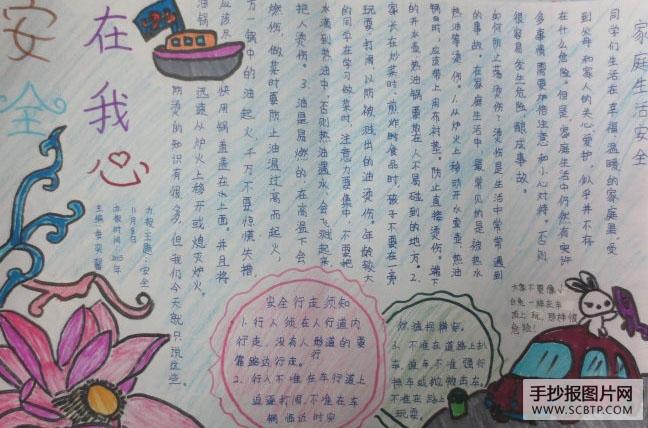 安全
在我心
家庭生活安全
同学们生活在幸福温暖的家庭里受
到父母和家人的关心爱护,似乎并不存
在什么危险。但是,家庭生活中仍然有
多事情需要加倍注意和小心对待,否则
很容易发生危险,酿成事故。
如何防止烫伤?烫伤是生活中常常遇到
的事故,在家庭生活中,最常见的是被热水
热油等烫伤。1.从炉火上移动开水壶、热油
锅时,应该带上用布衬垫。防止直接烫伤。端下
的开水壶、热油锅要放在人不易碰到的地方。2.
家长在炒菜时、煎炸时食品时,孩子不要在一旁
玩耍打闹,以防被溅出的油烫伤。年龄较大
的同学在学习做菜时,注意力要集中,不要把
水滴到热油中,否则热油遇水,会飞溅起来
把人烫伤。3.油是易燃的,在高温下会
燃烧,做菜时要防止油温过高而起火,
万一锅中的油起火,千万不要惊慌失措
快用锅盖盖在水上面。并且将
油锅迅速从炉火上移开或熄灭炉火。
防烫的知识有很多,但我们今天就只说这些
办报主题:安全
11月8日
办报时间2013年
安全行走须知
1.行人须在人行道内
行走,没有人形道的要
行
靠路边行走。
2.行人不准在车行道上
追逐打闹,不准在车
辆临近时突
然横穿。
3.不准在道路上扒
车,追车,不准强行
拦车或抛物击车。
不准在路上
玩耍。
大家不要像小
白兔一样在车
顶上玩,那样很
危险!
手抄报图片网
WWW.SCBTP.COM